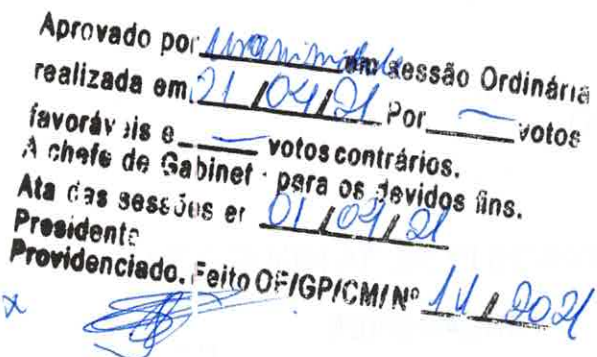 Aprovado por unanimidade em sessão Ordinária
realizada em 21 / 04 / 21 Por — votos
favoráveis e — votos contrários.
A chefe de Gabinet para os devidos fins.
Ata das sessões em 01 / 04 / 21
Presidente
Providenciado. Feito OF/GP/CM/Nº 14 / 2021
x